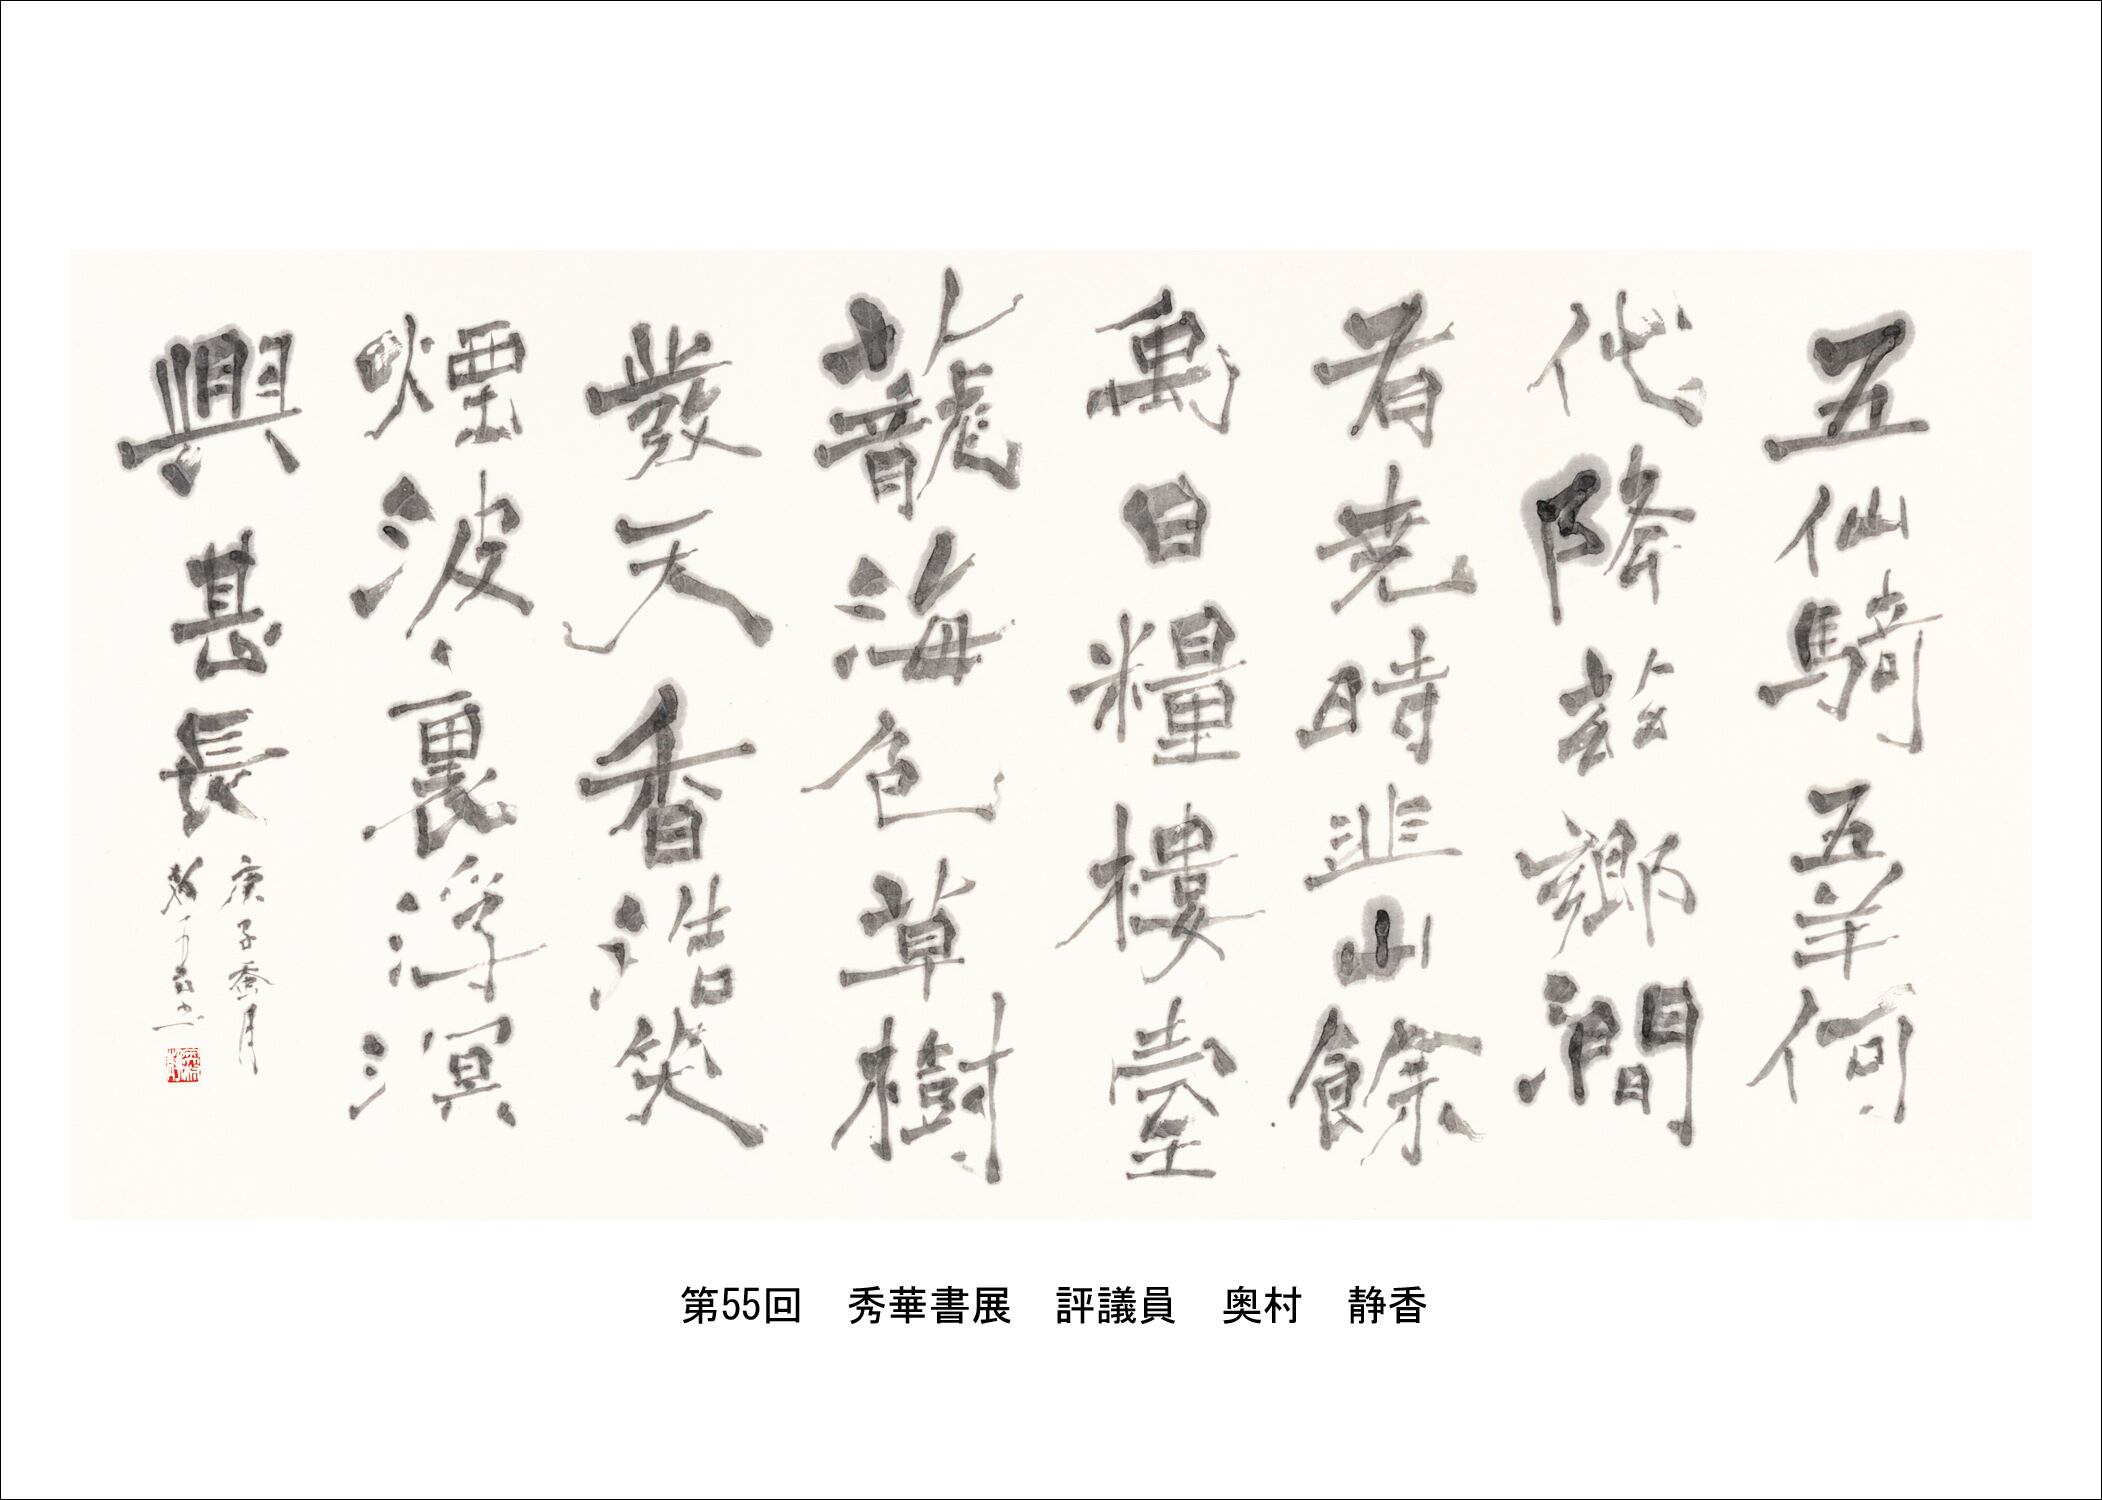 五仙騎五羊何
代降茲鄉澗
有堯時韭山餘
禹日糧樓臺
籠海色草樹
發天香浩笑
煙波裏浮溟
興甚長
庚子蚕月
第55回　秀華書展　評議員　奥村　静香